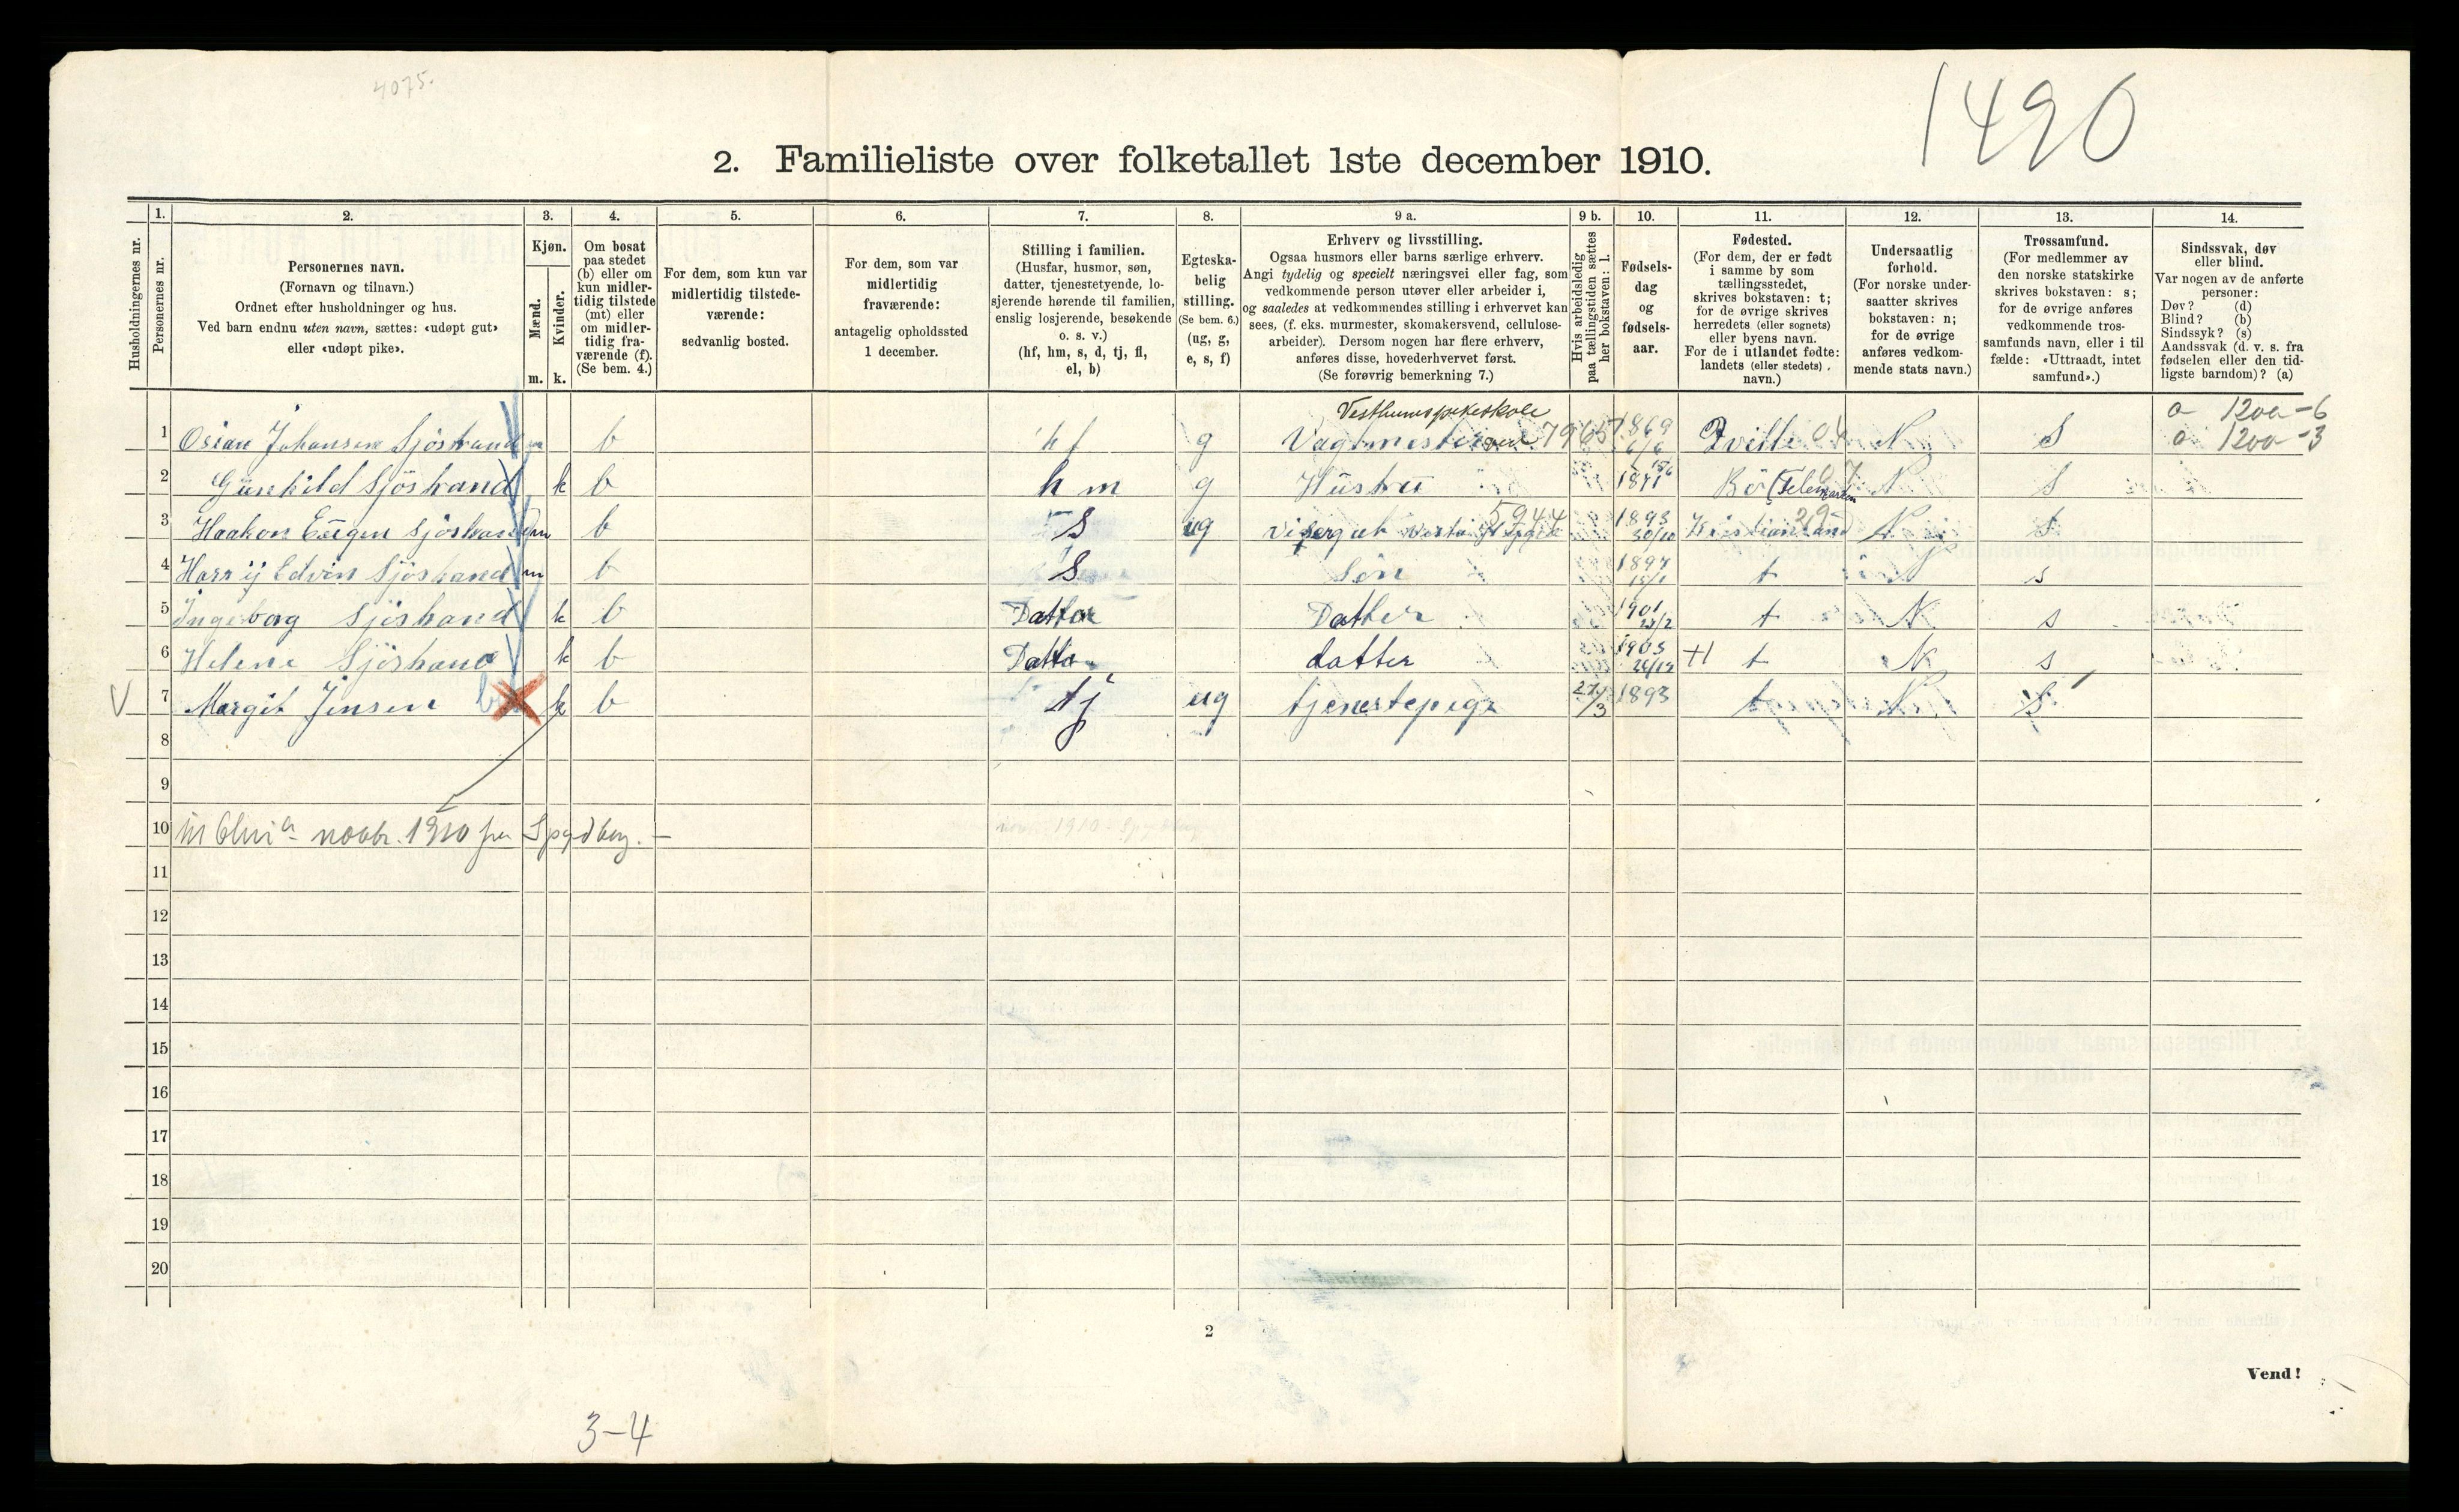 4075.
1490
2. Familieliste over folketallet 1ste december 1910.
1. 2. 3. 4. 5. 6. 7. 8. 9 a. 9 b. 10. 11. 12. 13. 14.
Husholdningernes nr.
Personernes nr.
Personernes navn.
(Fornavn og tilnavn.)
Ordnet efter husholdninger og hus.
Ved barn endnu uten navn, sættes: «udøpt gut»
eller «udøpt pike».
Kjøn.
Mænd.
Kvinder.
m. k.
Om bosat
paa stedet
(b) eller om
kun midler-
tidig tilstede
(mt) eller
om midler-
tidig fra-
værende (f).
(Se bem. 4.)
For dem, som kun var
midlertidig tilstede-
værende:
sedvanlig bosted.
For dem, som var
midlertidig
fraværende:
antagelig opholdssted
1 december.
Stilling i familien.
(Husfar, husmor, søn,
datter, tjenestetyende, lo-
sjerende hørende til familien,
enslig losjerende, besøkende
o. s. v.)
(hf, hm, s, d, tj, fl,
el, b)
Egteska-
belig
stilling.
(Se bem. 6.)
(ug, g,
e, s, f)
Erhverv og livsstilling.
Ogsaa husmors eller barns særlige erhverv.
Angi tydelig og specielt næringsvei eller fag, som
vedkommende person utøver eller arbeider i,
og saaledes at vedkommendes stilling i erhvervet kan
sees, (f. eks. murmester, skomakersvend, cellulose-
arbeider). Dersom nogen har flere erhverv,
anføres disse, hovederhvervet først.
(Se forøvrig bemerkning 7.)
Hvis arbeidsledig
paa tællingstiden sættes
her bokstaven: l.
Fødsels-
dag
og
fødsels-
aar.
Fødested.
(For dem, der er født
i samme by som
tællingsstedet,
skrives bokstaven: t;
for de øvrige skrives
herredets (eller sognets)
eller byens navn.
For de i utlandet fødte:
landets (eller stedets)
navn.)
Undersaatlig
forhold.
(For norske under-
saatter skrives
bokstaven: n;
for de øvrige
anføres vedkom-
mende stats navn.)
Trossamfund.
(For medlemmer av
den norske statskirke
skrives bokstaven: s;
for de øvrige anføres
vedkommende tros-
samfunds navn, eller i til
fælde: «Uttraadt, intet
samfund».)
Sindssvak, døv
eller blind.
Var nogen av de anførte
personer:
Døv? (d)
Blind? (b)
Sindssyk? (s)
Aandssvak (d. v. s. fra
fødselen eller den tid-
ligste barndom)? (a)
1200-6
1 Johansen Sjöstrand m b hf g 1869 6/6 N S 1200-3
2 Gunhild Sjöstrand k b hm g Hustru 1871 Bö (Telemarken N S
5944
3 Haakon Eugen Sjöstrand m b S ug Visergut 1893 30/10 Kristiansand N S
4 Harry Edvin Sjöstrand m b S Sön 1897 t s
5 Ingeborg Sjöstrand k b Datter Datter 1901 t N s
6 Helene Sjöstrand k b Datter datter 1905 24/12 t N s
V 7 Margit Jensen k b tj ug tjenestepige 27/3 1893 t N S
8
9
10 novbr. 1910 fra Spydberg. –
11
12
13
14
15
16
17
18
19
20
2
Vend!
3-4